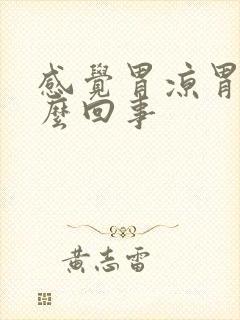 感覺胃涼胃
麼回事
黃志雷